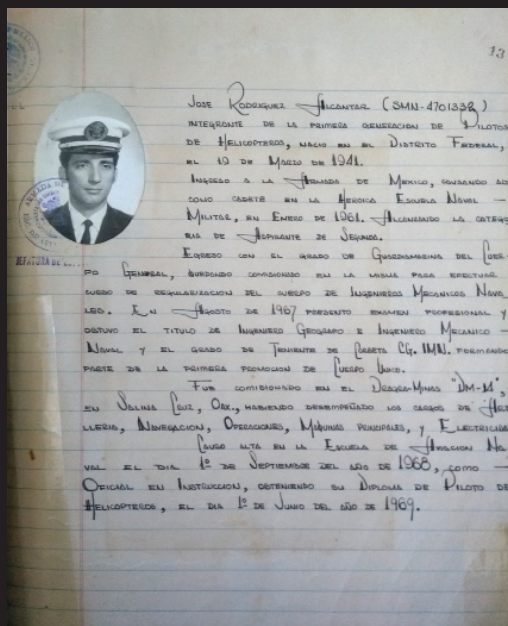 13
JOSE RODRIGUEZ ALCANTAR (SMN-4701338)
INTEGRANTE DE LA PRIMERA GENERACION DE PILOTOS
DE HELICOPTEROS, NACIO EN EL DISTRITO FEDERAL,
EL 19 DE MARZO DE 1941.
INGRESO A LA ARMADA DE MEXICO, CAUSANDO AL
COMO CADETE EN LA HEROICA ESCUELA NAVAL —
MILITAR, EN ENERO DE 1961. ALCANZANDO LA CATEGO
RIA DE ASPIRANTE DE SEGUNDA.
EGRESO CON EL GRADO DE GUARDIAMARINA DEL CUER-
PO GENERAL, QUEDANDO COMISIONADO EN LA MISMA PARA EFECTUAR
CURSO DE REGULARIZACION DEL CUERPO DE INGENIEROS MECANICOS NAVA
LES. EN AGOSTO DE 1967 PRESENTO EXAMEN PROFESIONAL Y
OBTUVO EL TITULO DE INGENIERO GEOGRAFO E INGENIERO MECANICO —
NAVAL Y EL GRADO DE TENIENTE DE CORBETA CG. IMN. FORMANDO
PARTE DE LA PRIMERA PROMOCION DE CUERPO UNICO.
FUE COMISIONADO EN EL DRAGA-MINAS "DM-14",
EN SALINA CRUZ, OAX., HABIENDO DESEMPEÑADO LOS CARGOS DE ART
LLERIA, NAVEGACION, OPERACIONES, MAQUINAS PRINCIPALES, Y ELECTRICIDA
CAUSO ALTA EN LA ESCUELA DE AVIACION NA
VAL EL DIA 1º DE SEPTIEMBRE DEL AÑO DE 1968, COMO —
OFICIAL EN INSTRUCCION, OBTENIENDO SU DIPLOMA DE PILOTO DE
HELICOPTEROS, EL DIA 1º DE JUNIO DEL AÑO DE 1969.
ARMADA DE